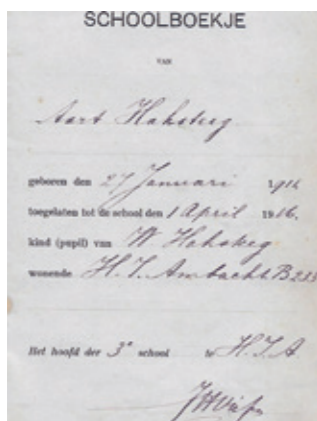 SCHOOLBOEKJE
VAN
Aart
geboren den 27 Januari
toegelaten tot de school den 1 April 1916.
kind (pupil) van W
wonende H. I. Ambacht
Het hoofd der 3e school te H. I. A.